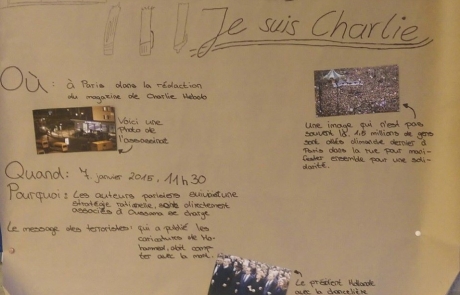 Je suis Charlie
Où: à Paris dans la rédaction
du magazine de Charlie Hebdo
Voici une
Photo de
l'assassinat
Une image qui n'est pas
souvent là. 1,8 millions de gens
sont allés dimanche dernier à
Paris dans la rue pour mani-
fester ensemble pour une soli-
darité.
Quand: 7. janvier 2015, 11h30
Pourquoi: Les auteurs parisiens suivait une
stratégie rationelle, directement
associés à Oussama se charge
Le message des terroristes: qui a publié les
caricatures de Mo-
hammed, doit comp-
ter avec la mort.
Le président Hollande
avec la chancelière